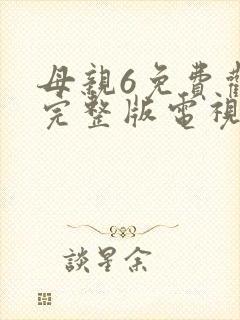 母親6免費
完整版電視
談星余